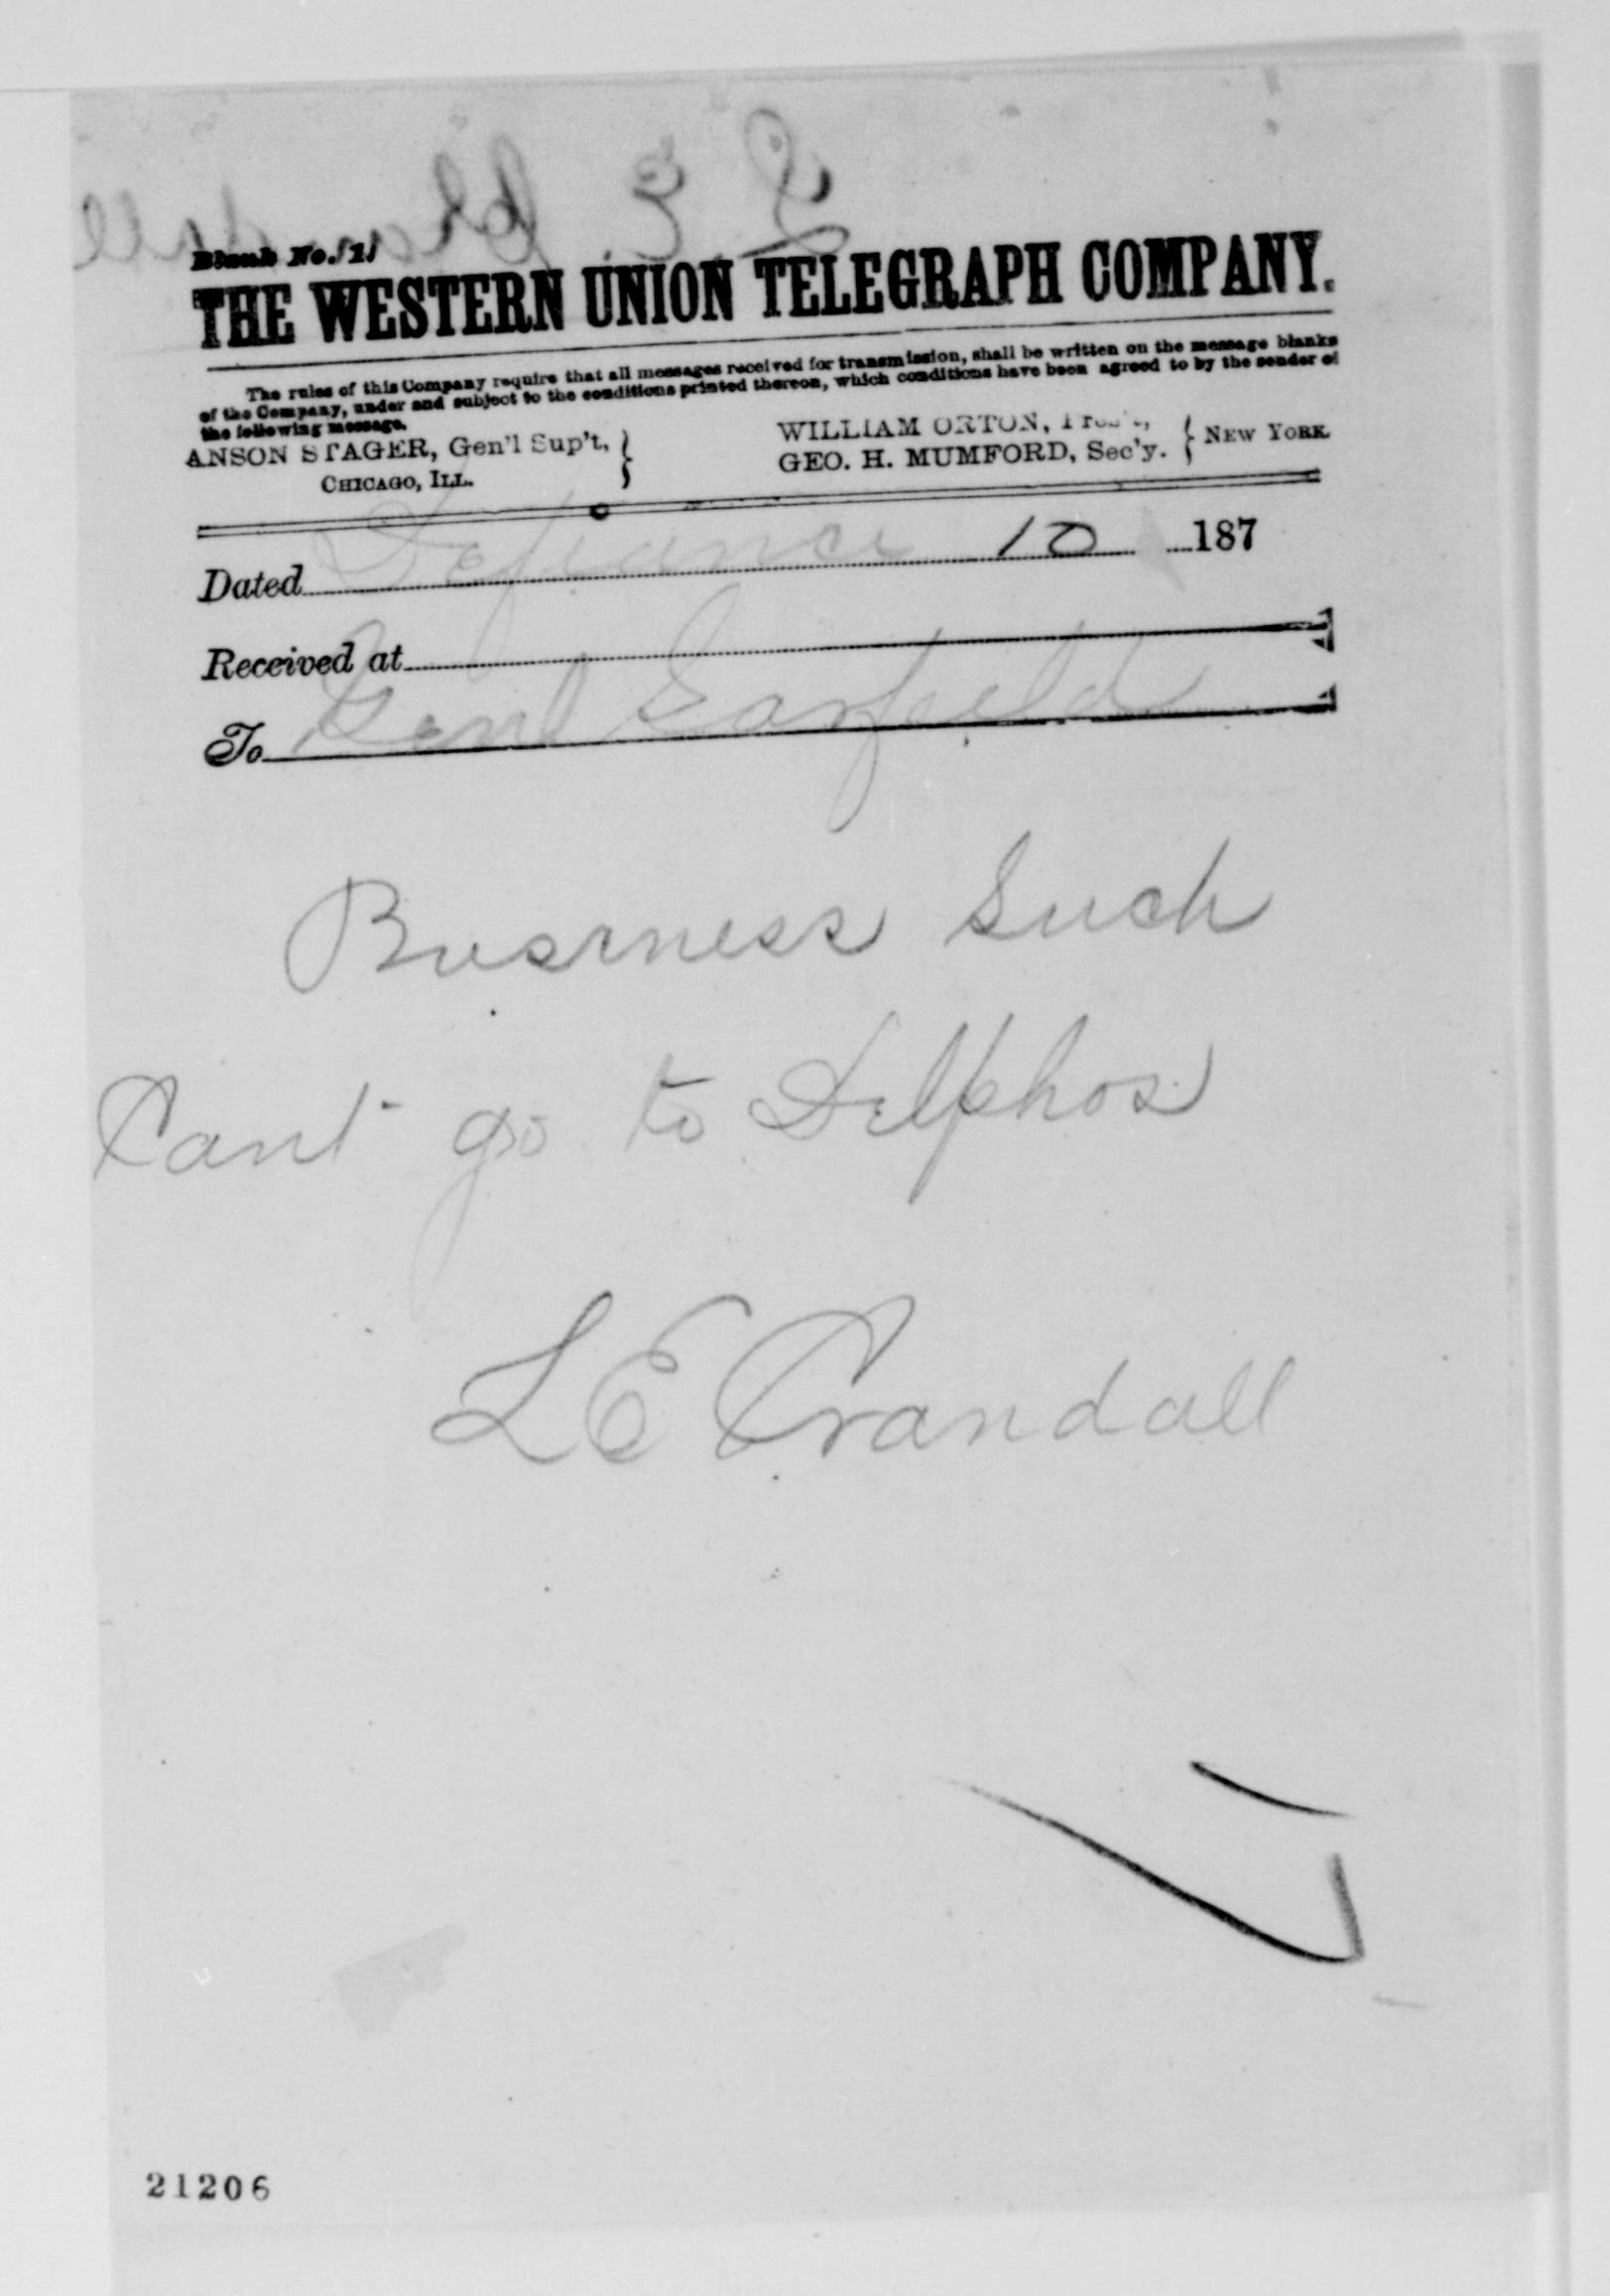 Blank No. 1.
THE WESTERN UNION TELEGRAPH COMPANY.
The rules of this Company require that all messages received for transmission, shall be written on the message blanks
of the Company, under and subject to the conditions printed thereon, which conditions have been agreed to by the sender of
the following message.
ANSON STAGER, Gen'l Sup't, WILLIAM ORTON, Pres't,
CHICAGO, ILL. GEO. H. MUMFORD, Sec'y. NEW YORK.
Dated Defiance 10 187
Received at
To Genl Garfield
Business Such
Cant go to Delphos
L E Crandall
21206